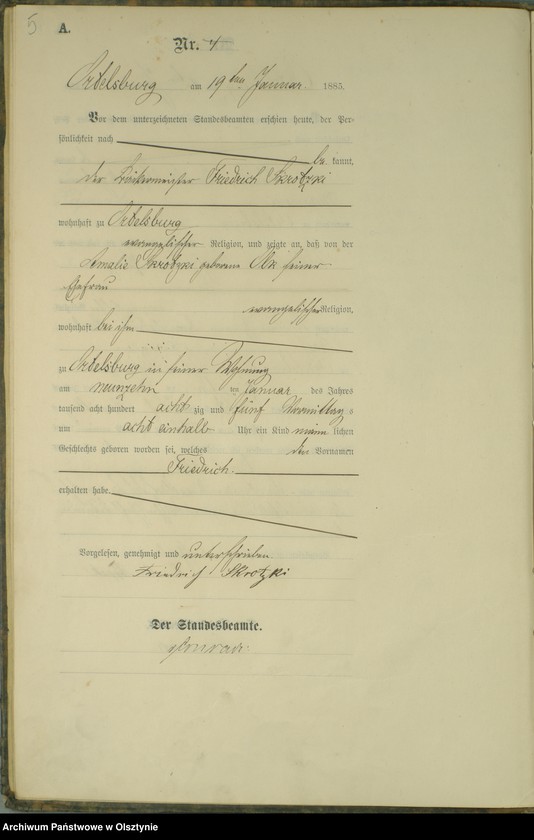 5
A.
Nr. 4
Ortelsburg am 19ten Januar 1885.
Vor dem unterzeichneten Standesbeamten erschien heute, der Per-
sönlichkeit nach
be kannt,
der Bäckermeister Friedrich Skrotzki
wohnhaft zu Ortelsburg
evangelischer Religion, und zeigte an, daß von der
Amalie Skrotzki geborene Olk seiner
Ehefrau
evangelischer Religion,
wohnhaft bei ihm
zu Ortelsburg in seiner Wohnung
am neunzehn ten Januar des Jahres
tausend acht hundert acht zig und fünf Vormittag s
um acht einhalb Uhr ein Kind männ lichen
Geschlechts geboren worden sei, welches den Vornamen
Friedrich
erhalten habe.
Vorgelesen, genehmigt und unterschrieben
Friedrich Skrotzki
Der Standesbeamte.
Archiwum Państwowe w Olsztynie